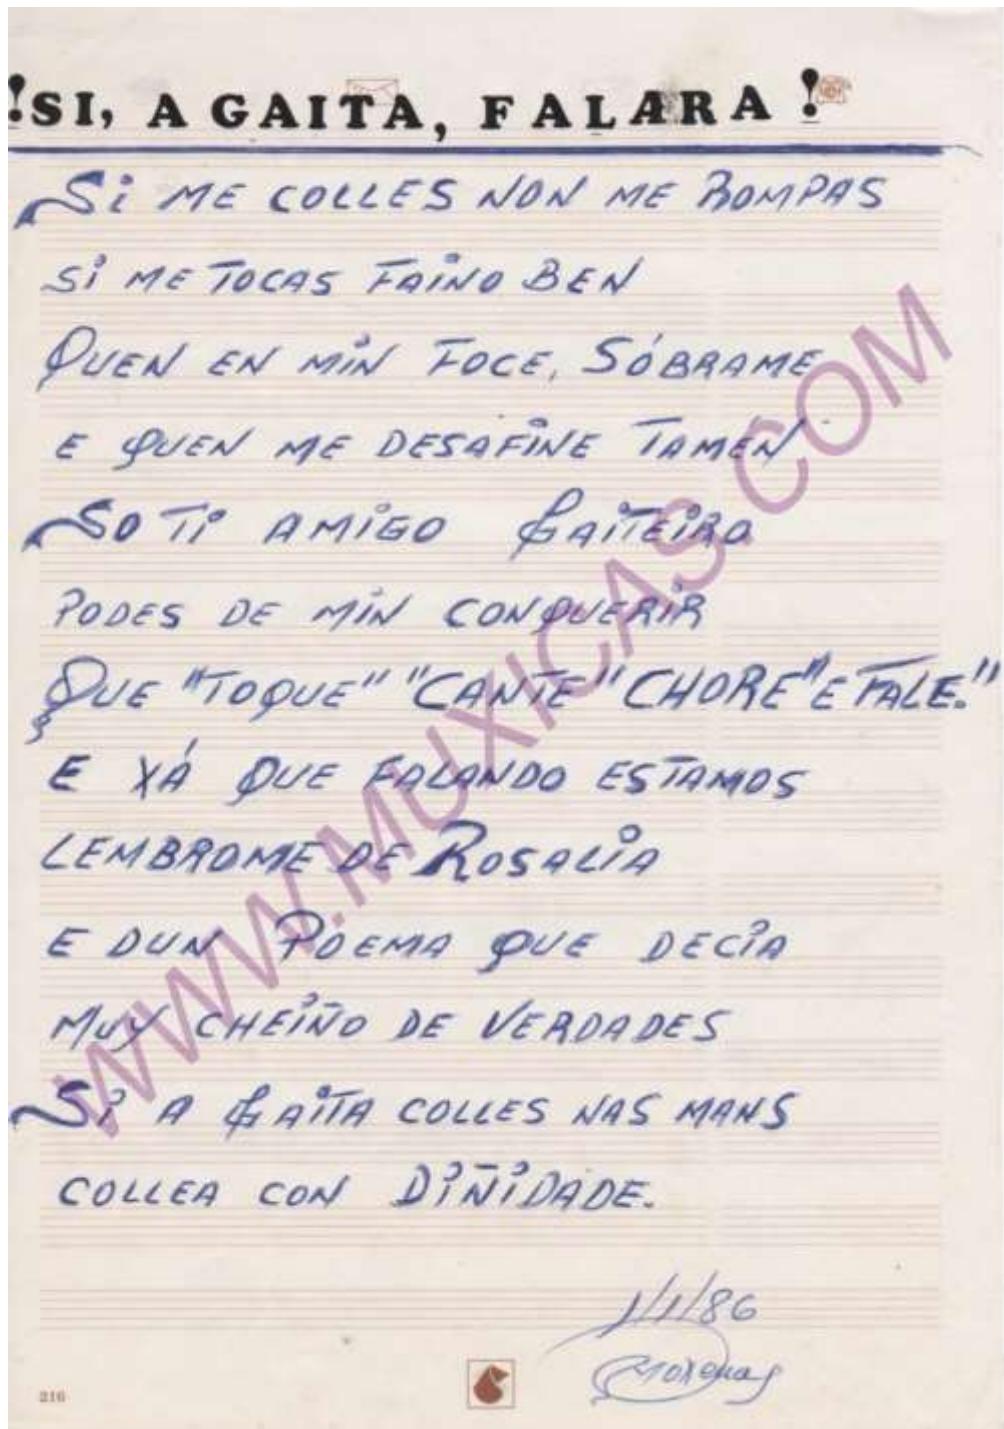 !SI, A GAITA, FALARA!
Si ME COLLES NON ME ROMPAS
Si ME TOCAS FAiNO BEN
QUEN EN MiN FOCE, SÓBRAME
E QUEN ME DESAFiNE TAMEN
SO Ti AMiGO GAiTEiRO
PODES DE MiN CONQUERiR
QUE "TOQUE" "CANTE" CHORE" E FALE."
E XÁ QUE FALANDO ESTAMOS
LEMBROME DE ROSALiA
E DUN POEMA QUE DECiA
MUY CHEiÑO DE VERDADES
Si A GAiTA COLLES NAS MANS
COLLEA CON DiÑiDADE.
1/1/86
216
WWW.MUXICAS.COM